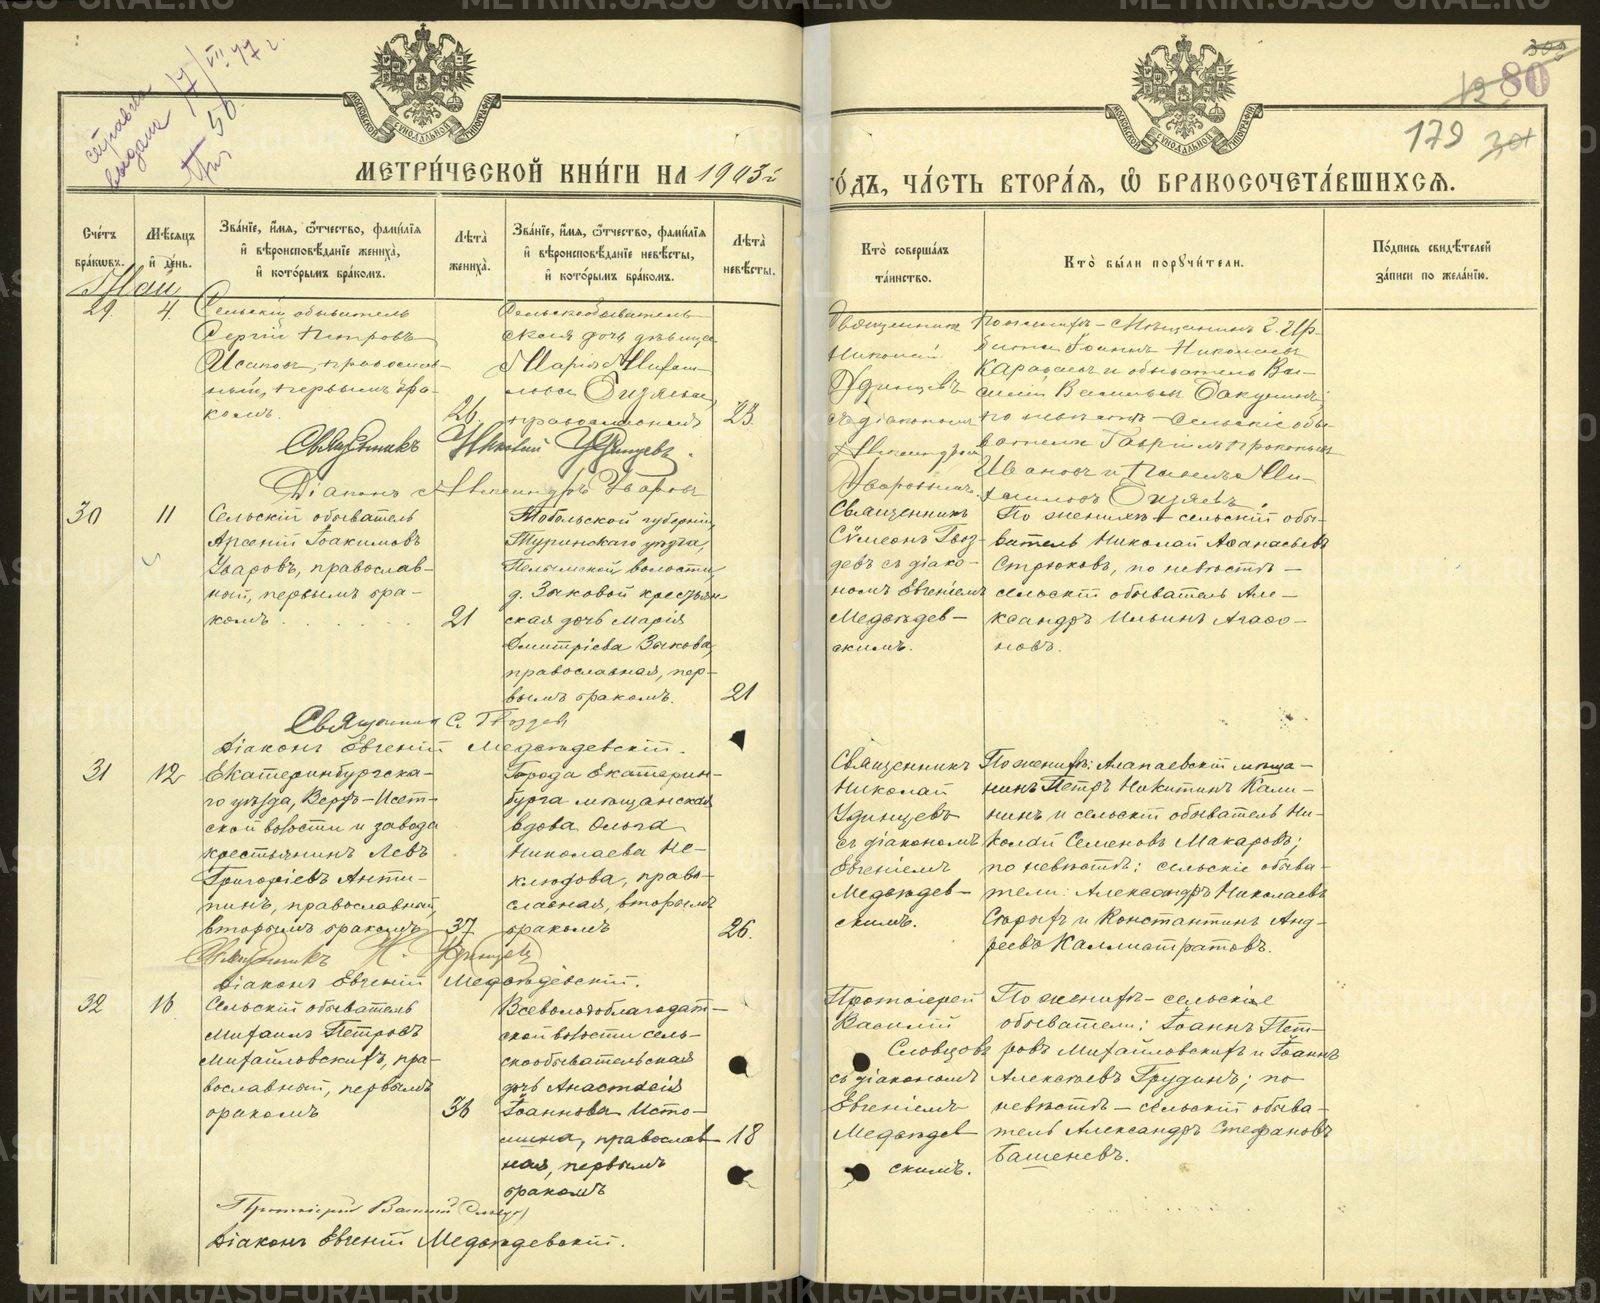 справка
выдана 17/VII 47 г.
МЕТРИ́ЧЕСКОЙ КНИ́ГИ НА 1903й
ГО́ДЪ, ЧА́СТЬ ВТОРА́Я, Ѽ БРАКОСОЧЕТА́ВШИХСЯ.
80
179
МОСКОВСКОЙ СУНОДАЛЬНОЙ ТИПОГРАФІИ
МОСКОВСКОЙ СУНОДАЛЬНОЙ ТИПОГРАФІИ
Сче́тъ
бра́кѡвъ.
Мѣ́сяцъ
и҆ де́нь.
Зва́нїе, и҆́мя, ѻ҆́тчество, фами́лїя
и҆ вѣроисповѣ́данїе жениха̀,
и҆ кото́рымъ бра́комъ.
Лѣ́та̀
жениха̀.
Зва́нїе, и҆́мя, ѻ҆́тчество, фами́лїя
и҆ вѣроисповѣ́данїе невѣ́сты,
и҆ кото́рымъ бра́комъ.
Лѣ́та̀
невѣ́сты.
Кто̀ соверша́лъ
та́инство.
Кто̀ бы́ли порꙋчи́тели.
По́дпись свидѣ́телей
за́писи по жела́нїю.
Май
29
4.
Сельскій обыватель
Сергій Петровъ
Исаковъ, православ-
ный, первымъ бра-
комъ.
26
Сельскообыватель-
ская дочь дѣвица
Марія Михаи-
лова
православная
23.
Священникъ
Николай
Удинцевъ
съ діакономъ
Александромъ
Уваровымъ.
По женихѣ – Мѣщанинъ г. Ир-
бита Іоаннъ Николаевъ
Караваевъ и обыватель Ва-
силій Васильевъ Бакунинъ;
по невѣстѣ – Сельскіе обы-
ватели Гавріилъ Прокопьевъ
Ивановъ и Павелъ Ми-
хаиловъ
Священникъ Николай Удинцевъ.
Діаконъ Александръ Уваровъ
30
11
Сельскій обыватель
Арсеній Іоакимовъ
Уваровъ, православ-
ный, первымъ бра-
комъ
21
Тобольской губерніи,
Туринскаго уѣзда,
Пелымской волости,
д. Зыковой крестьян
ская дочь Марія
Димитріева Зыкова,
православная, пер-
вымъ бракомъ.
21
Священникъ
Сѵмеонъ Гвоз-
девъ съ діако-
номъ Евгеніемъ
Медвѣдев-
скимъ.
По женихѣ – сельскій обы-
ватель Николай Аѳанасьевъ
Стрюковъ, по невѣстѣ –
сельскій обыватель Але-
ксандръ Ильинъ Агафо-
новъ.
Священникъ С. Гвоздев
Діаконъ Евгеній Медвѣдевскій.
31
12
Екатеринбургска-
го уѣзда, Верхъ-Исет-
ской волости и завода
крестьянинъ Левъ
Григоріевъ Анти-
пинъ, православный,
вторымъ бракомъ
37
Города Екатерин-
бурга мѣщанская
вдова Ольга
Николаева Не-
клюдова, право-
славная, вторымъ
бракомъ
26.
Священникъ
Николай
Удинцевъ
съ діакономъ
Евгеніемъ
Медвѣдев-
скимъ.
По женихѣ: Алапаевскій мѣща-
нинъ Петръ Никитинъ Кали-
нинъ и сельскій обыватель Ни-
колай Семеновъ Макаровъ;
по невѣстѣ: сельскіе обыва-
тели: Александръ Николаевъ
Старыхъ и Константинъ Анд-
реевъ Каллистратовъ.
Священникъ Н. Удинцевъ
Діаконъ Евгеній Медвѣдевскій.
32
16
Сельскій обыватель
Михаилъ Петровъ
Михайловскихъ, пра-
вославный, первымъ
бракомъ
36
Всеволодоблагодат-
ской волости сель-
скообывательская
дочь Анастасія
Іоаннова Исто-
мина, православ-
ная, первымъ
бракомъ
18
Протоіерей
Василій
Словцовъ
съ діакономъ
Евгеніемъ
Медвѣдев
скимъ.
По женихѣ – сельскіе
обыватели: Іоаннъ Пет-
ровъ Михайловскихъ и Іоаннъ
Алексѣевъ Грудинъ; по
невѣстѣ – сельскій обыва-
тель Александръ Стефановъ
Башеневъ.
Протоіерей Василій Словцовъ
Діаконъ Евгеній Медвѣдевскій.
METRIKI.GASU-URAL.RU